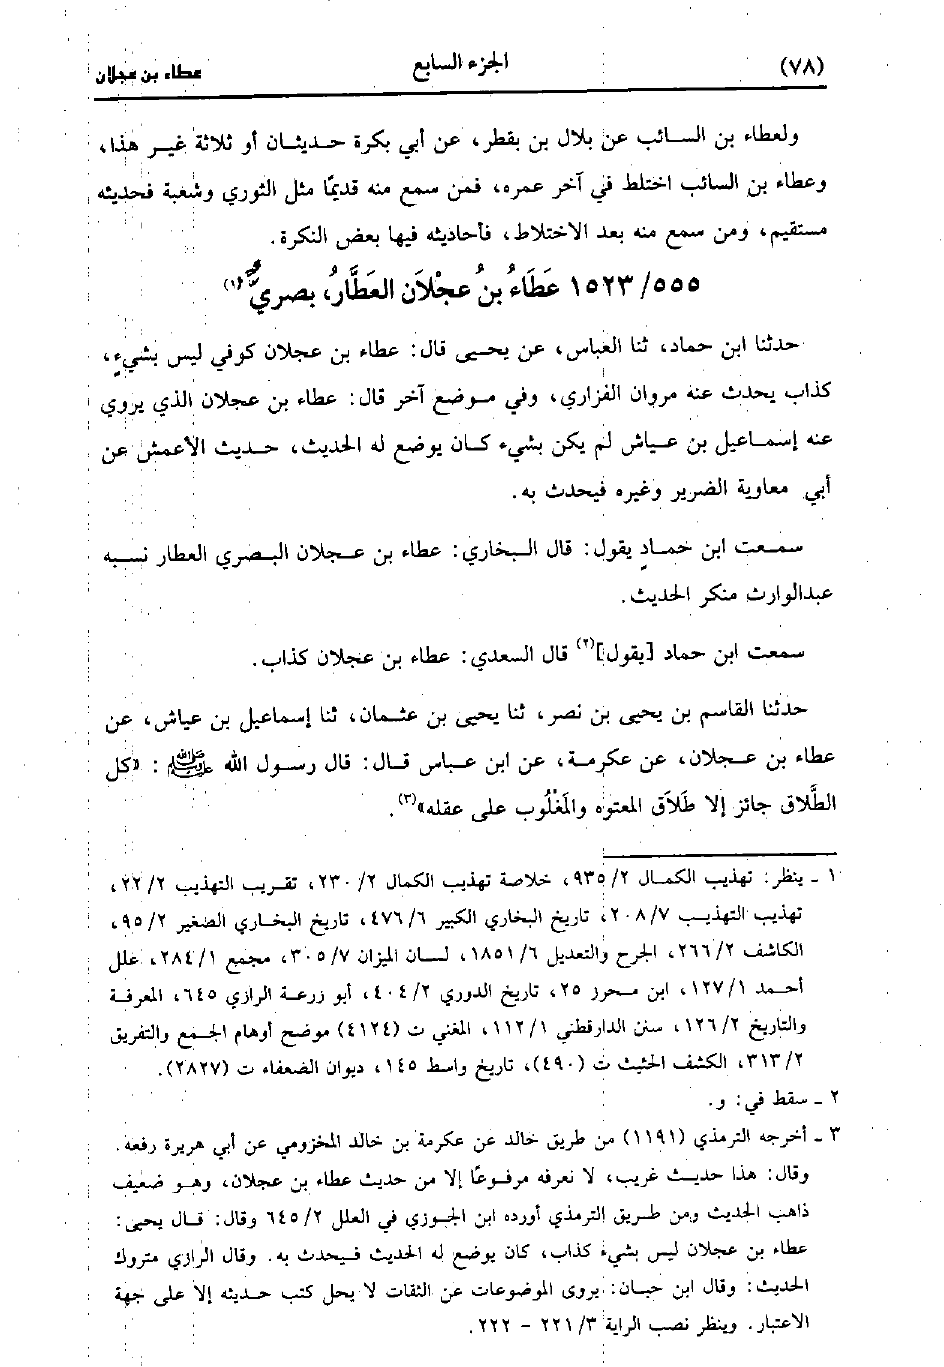 (٧٨) الجزء السابع عطاء بن عجلان
ولعطاء بن السائب عن بلال بن بقطر، عن أبي بكرة حديثان أو ثلاثة غير هذا،
وعطاء بن السائب اختلط في آخر عمره، فمن سمع منه قديمًا مثل الثوري وشعبة فحديثه
مستقيم، ومن سمع منه بعد الاختلاط، فأحاديثه فيها بعض النكرة.
١٥٢٣/٥٥٥ عَطَاءُ بنُ عجْلاَن العَطَّارُ، بصريٌّ(١)
حدثنا ابن حماد، ثنا العباس، عن يحيى قال: عطاء بن عجلان كوفي ليس بشيءٍ،
كذاب يحدث عنه مروان الفزاري، وفي موضع آخر قال: عطاء بن عجلان الذي يروي
عنه إسماعيل بن عياش لم يكن بشيء كان يوضع له الحديث، حديث الأعمش عن
أبي معاوية الضرير وغيره فيحدث به.
سمعت ابن حمادٍ يقول: قال البخاري: عطاء بن عجلان البصري العطار نسبه
عبدالوارث منكر الحديث.
سمعت ابن حماد [يقول](٢) قال السعدي: عطاء بن عجلان كذاب.
حدثنا القاسم بن يحيى بن نصر، ثنا يحيى بن عثمان، ثنا إسماعيل بن عياش، عن
عطاء بن عجلان، عن عكرمة، عن ابن عباس قال: قال رسول الله ﷺ: «كل
الطَّلاق جائز إلا طَلاَق المعتوه والمَغْلُوب على عقله»(٣).
١ ـ ينظر: تهذيب الكمال ٩٣٥/٢، خلاصة تهذيب الكمال ٢٣٠/٢، تقريب التهذيب ٢٢/٢،
تهذيب التهذيب ٢٠٨/٧، تاريخ البخاري الكبير ٤٧٦/٦، تاريخ البخاري الصغير ٩٥/٢،
الكاشف ٢٦٦/٢، الجرح والتعديل ١٨٥١/٦، لسان الميزان ٣٠٥/٧، مجمع ٢٨٤/١، علل
أحمد ١٢٧/١، ابن محرز ٢٥، تاريخ الدوري ٤٠٤/٢، أبو زرعة الرازي ٦٤٥، المعرفة
والتاريخ ١٢٦/٢، سنن الدارقطني ١١٢/١، المغني ت (٤١٢٤) موضح أوهام الجمع والتفريق
٣١٣/٢، الكشف الحثيث ت (٤٩٠)، تاريخ واسط ١٤٥، ديوان الضعفاء ت (٢٨٢٧).
٢ ـ سقط في: و.
٣ ـ أخرجه الترمذي (١١٩١) من طريق خالد عن عكرمة بن خالد المخزومي عن أبي هريرة رفعه.
وقال: هذا حديث غريب، لا نعرفه مرفوعًا إلا من حديث عطاء بن عجلان، وهو ضعيف
ذاهب الحديث ومن طريق الترمذي أورده ابن الجوزي في العلل ٦٤٥/٢ وقال: قال يحيى:
عطاء بن عجلان ليس بشيء كذاب، كان يوضع له الحديث فيحدث به. وقال الرازي متروك
الحديث: وقال ابن حبان: يروى الموضوعات عن الثقات لا يحل كتب حديثه إلا على جهة
الاعتبار. وينظر نصب الراية ٢٢١/٣ - ٢٢٢.